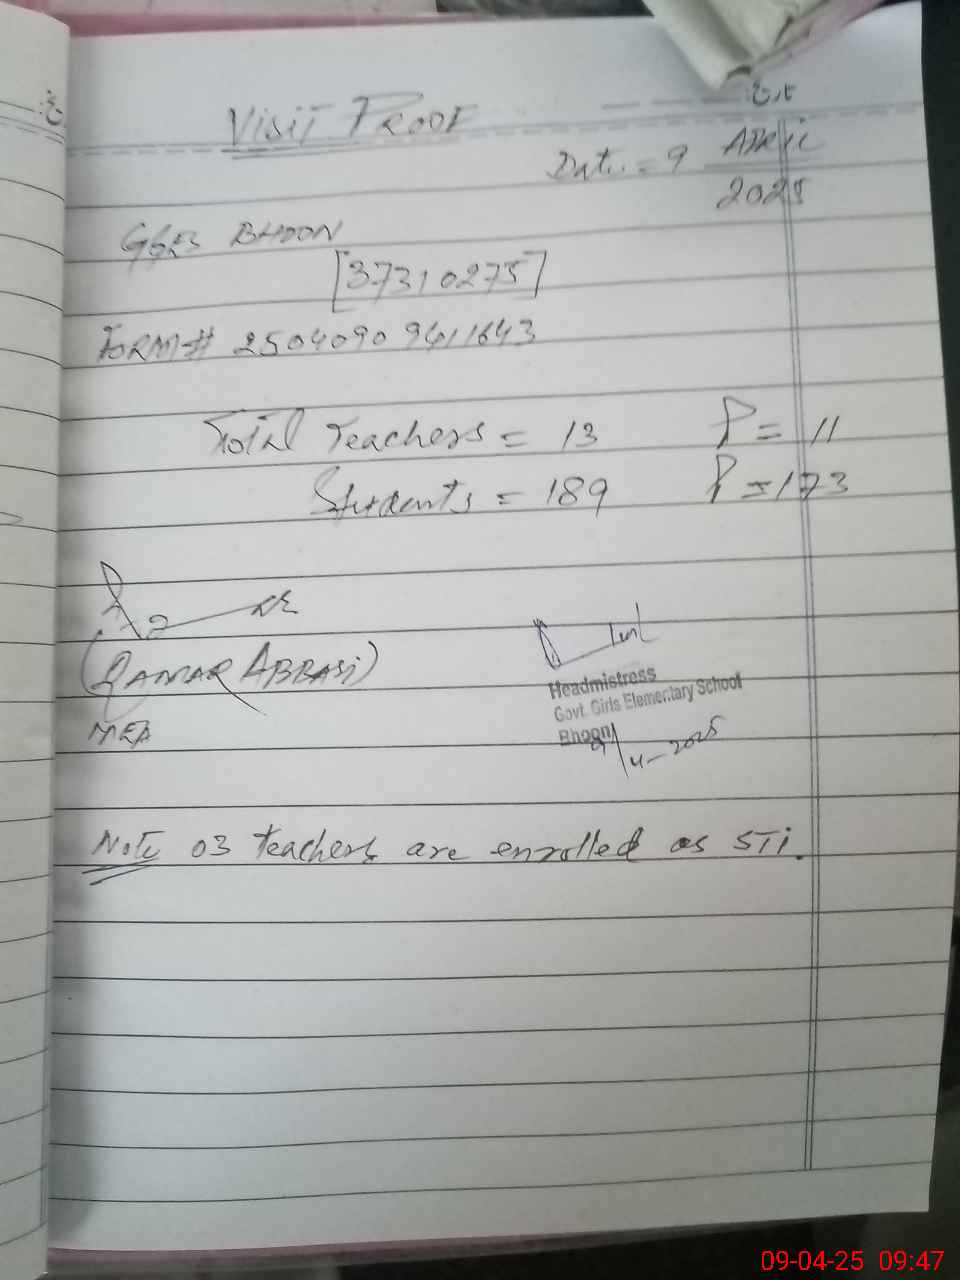 تاریخ
Visit PROOF
Date = 9 APRil
2025
GGES BHOON
[37310275]
FORM# 25040909411643
Total Teachers = 13 P = 11
Students = 189 P = 173
(QAMAR ABBASi)
MEA
Headmistress
Govt. Girls Elementary School
Bhoon
9/4-2025
Note 03 teachers are enrolled as STi.
09-04-25 09:47